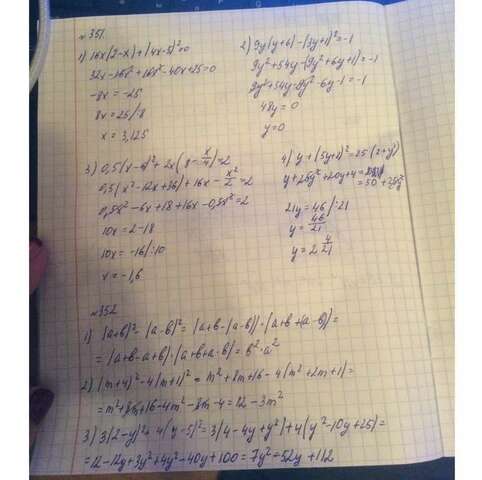 №351.
1) 16x(2-x)+(4x-5)²=0
32x-16x²+16x²-40x+25=0
-8x = -25
8x = 25/:8
x = 3,125
2) 9y(y+6)-(3y+1)²=-1
9y²+54y-(9y²+6y+1)=-1
9y²+54y-9y²-6y-1=-1
48y = 0
y=0
3) 0,5(x-6)²+2x(8-x/4)=2
0,5(x²-12x+36)+16x-x²/2=2
0,5x²-6x+18+16x-0,5x²=2
10x = 2-18
10x = -16/:10
x = -1,6
4) y+(5y+2)²=25(2+y²)
y+25y²+20y+4=
=50+25y²
21y=46/:21
y=46/21
y=2 4/21
№352
1) (a+b)²-(a-b)²=(a+b-(a-b))·(a+b+(a-b))=
=(a+b-a+b)·(a+b+a-b)=b²·a²
2) (m+4)²-4(m+1)²=m²+8m+16-4(m²+2m+1)=
=m²+8m+16-4m²-8m-4=12-3m²
3) 3(2-y)²+4(y-5)²=3(4-4y+y²)+4(y²-10y+25)=
=12-12y+3y²+4y²-40y+100=7y²-52y+112